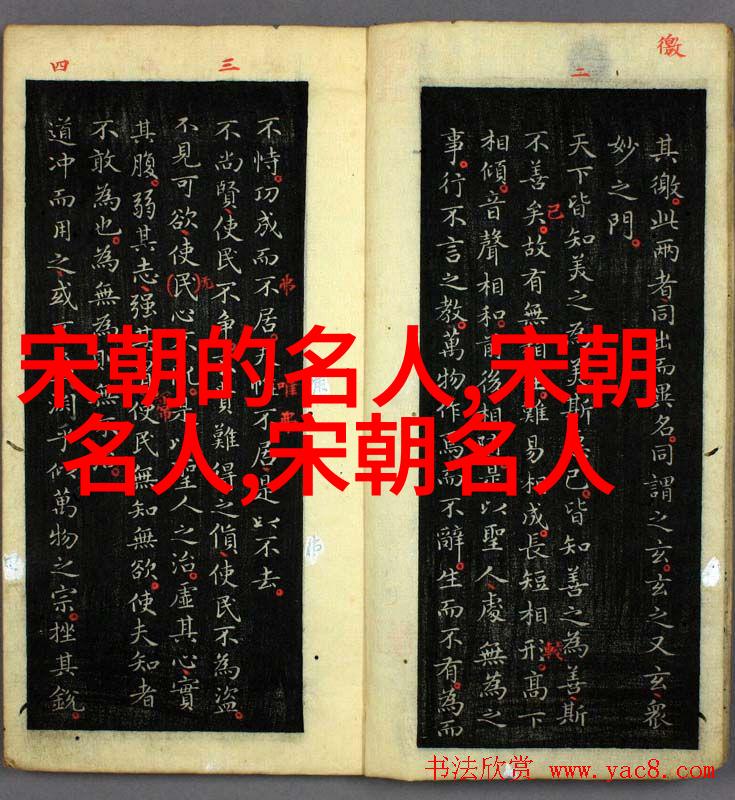 徼
二
其徼此兩者同出而異名同謂之玄玄之又玄眾
妙之門
天下皆知美之為美斯已皆知善之為善斯
不善矣故有無相生難易相成長短相形高下
相傾音聲相和前後相隨是以聖人處無為之
事行不言之教萬物作焉而不辭生而不有為而
三
四
不恃功成而不居夫惟不居是以不去
不尚賢使民不争貴難得之貨使民不為盜
不見可欲使民心不亂是以聖人之治虛其心實
其腹弱其志强其使民無知無欲使夫知者
不敢為也為無為則無
道冲而用之或淵乎似萬物之宗挫其銳
宋朝的名人,宋朝
名人,宋朝名人
书法欣赏 www.yac8.com